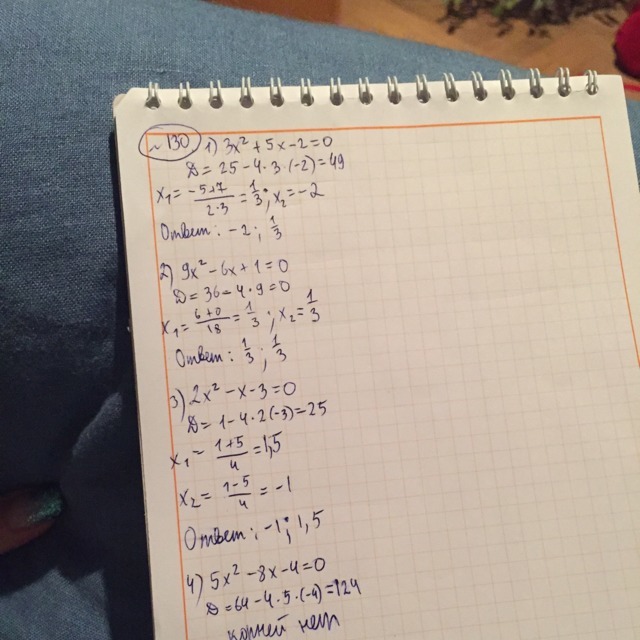 № 130 1) 3x² + 5x - 2 = 0
D = 25 - 4 · 3 · (-2) = 49
x₁ = (-5+7)/(2·3) = 1/3; x₂ = -2
Ответ: -2; 1/3
2) 9x² - 6x + 1 = 0
D = 36 - 4 · 9 = 0
x₁ = (6+0)/18 = 1/3; x₂ = 1/3
Ответ: 1/3; 1/3
3) 2x² - x - 3 = 0
D = 1 - 4 · 2(-3) = 25
x₁ = (1+5)/4 = 1,5
x₂ = (1-5)/4 = -1
Ответ: -1; 1,5
4) 5x² - 8x - 4 = 0
D = 64 - 4 · 5 · (-4) = 124
корней нет